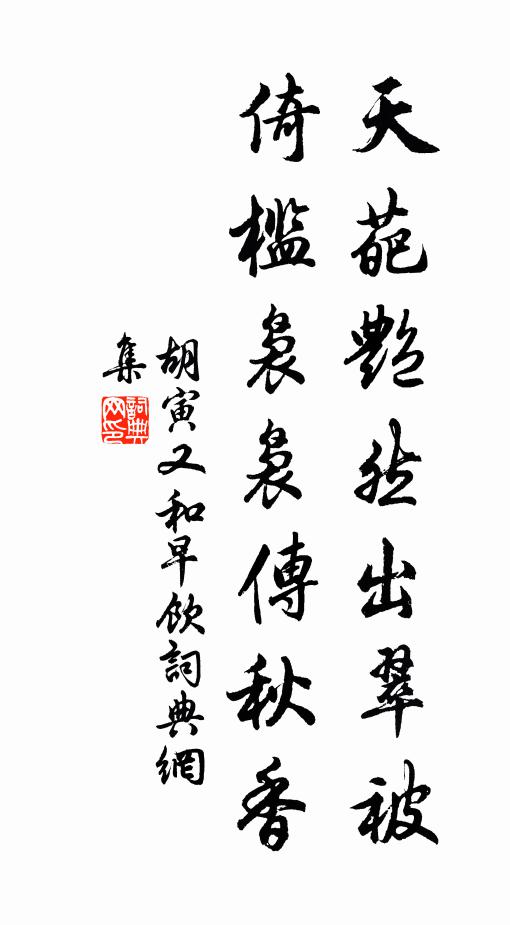 天葩艷然出翠被
倚檻裊裊傳秋香
胡寅又和早飲詞典網
集
詞典网印